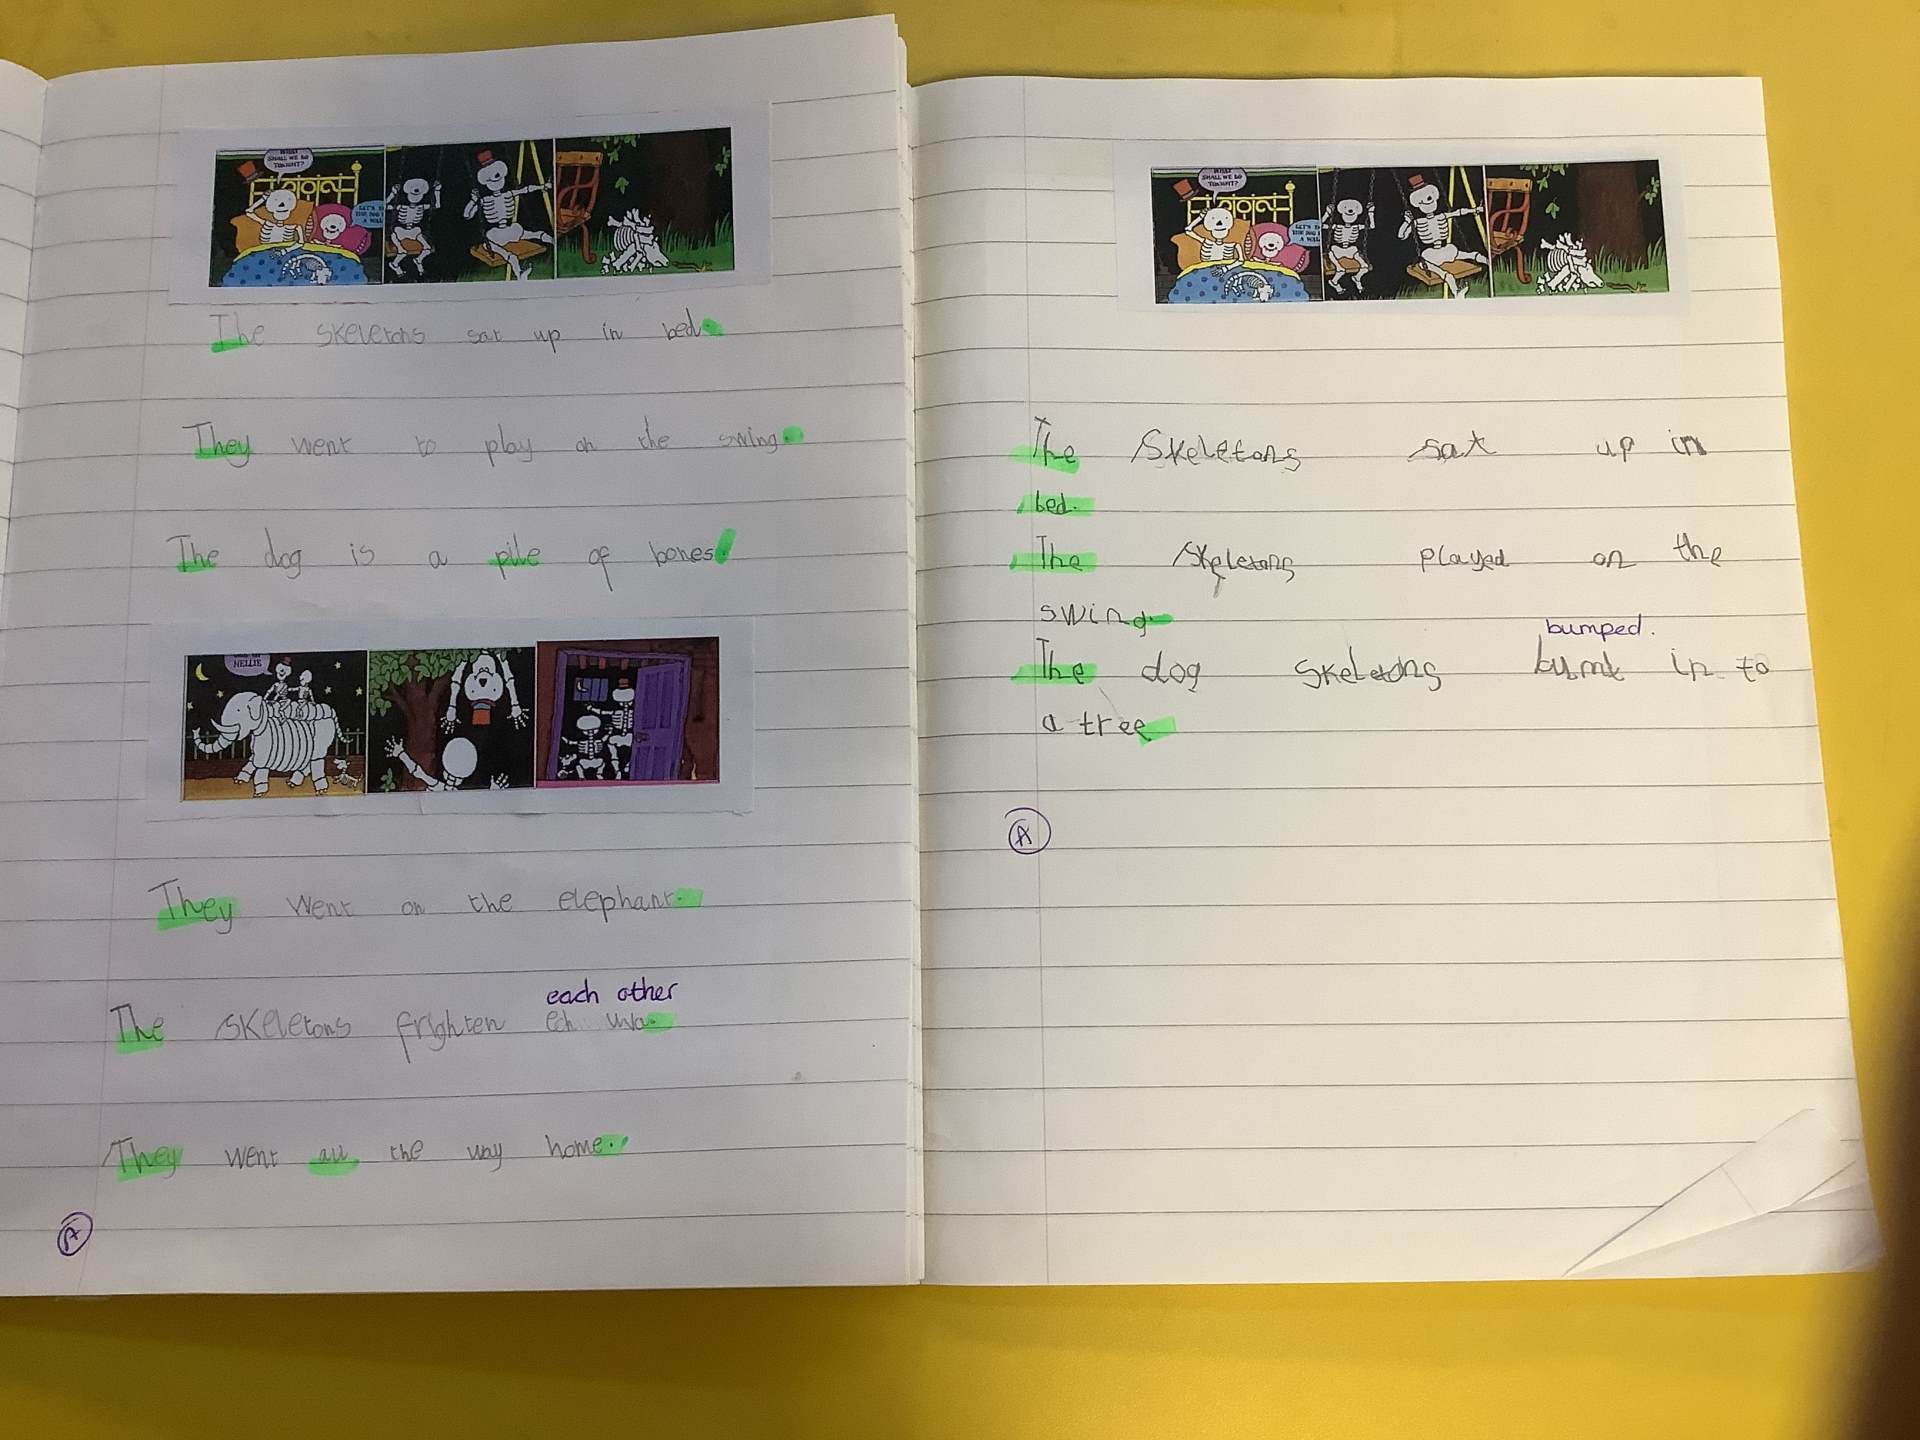 WHAT
SHALL WE DO
TONIGHT?
The skeletons sat up in bed.
They went to play on the swing.
The dog is a pile of bones.
NELLIE
They went on the elephant.
each other
The skeletons frighten ech uva.
They went all the way home.
A
SHALL WE DO
TONIGHT?
The skeletons sat up in
bed.
The skeletons played on the
swing.
bumped.
The dog skeletons bumt in to
a tree.
A